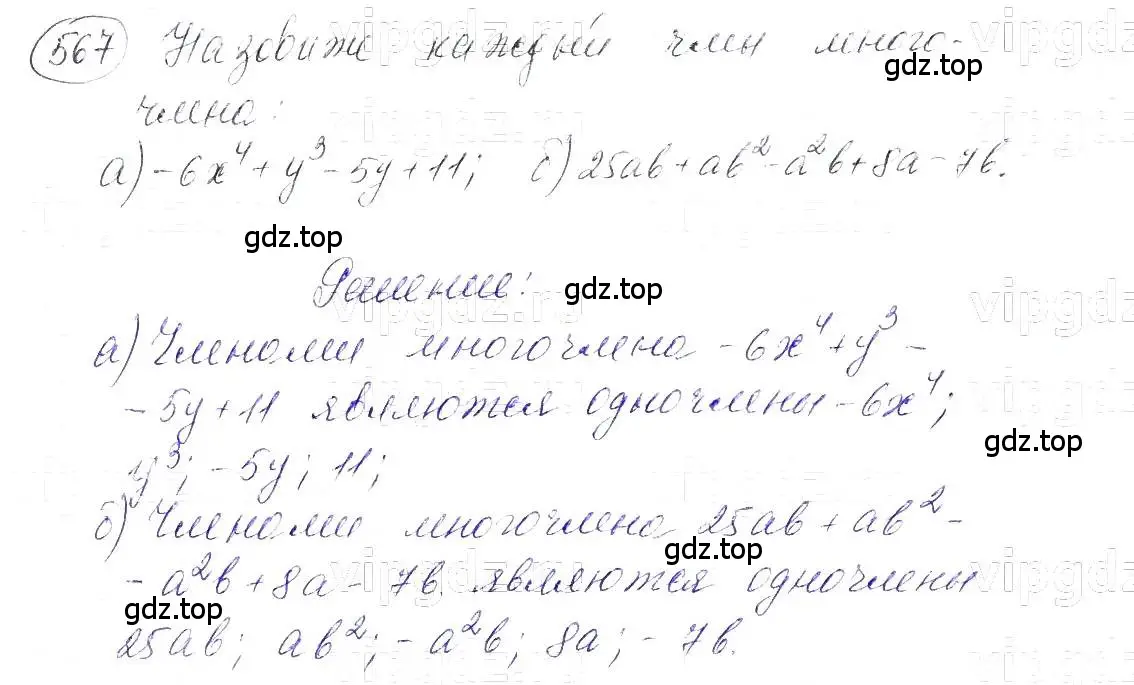 567 Назовите каждый член много-
члена:
а) -6x⁴ + y³ - 5y + 11; б) 25ab + ab² - a²b + 8a - 7b.
Решение:
а) Членами многочлена -6x⁴ + y³ -
- 5y + 11 являются одночлены -6x⁴;
y³; -5y; 11;
б) Членами многочлена 25ab + ab² -
- a²b + 8a - 7b. являются одночлены
25ab; ab²; -a²b; 8a; -7b.
gdz.top
gdz.top
gdz.top
gdz.top
gdz.top
gdz.top
vipgdz.ru